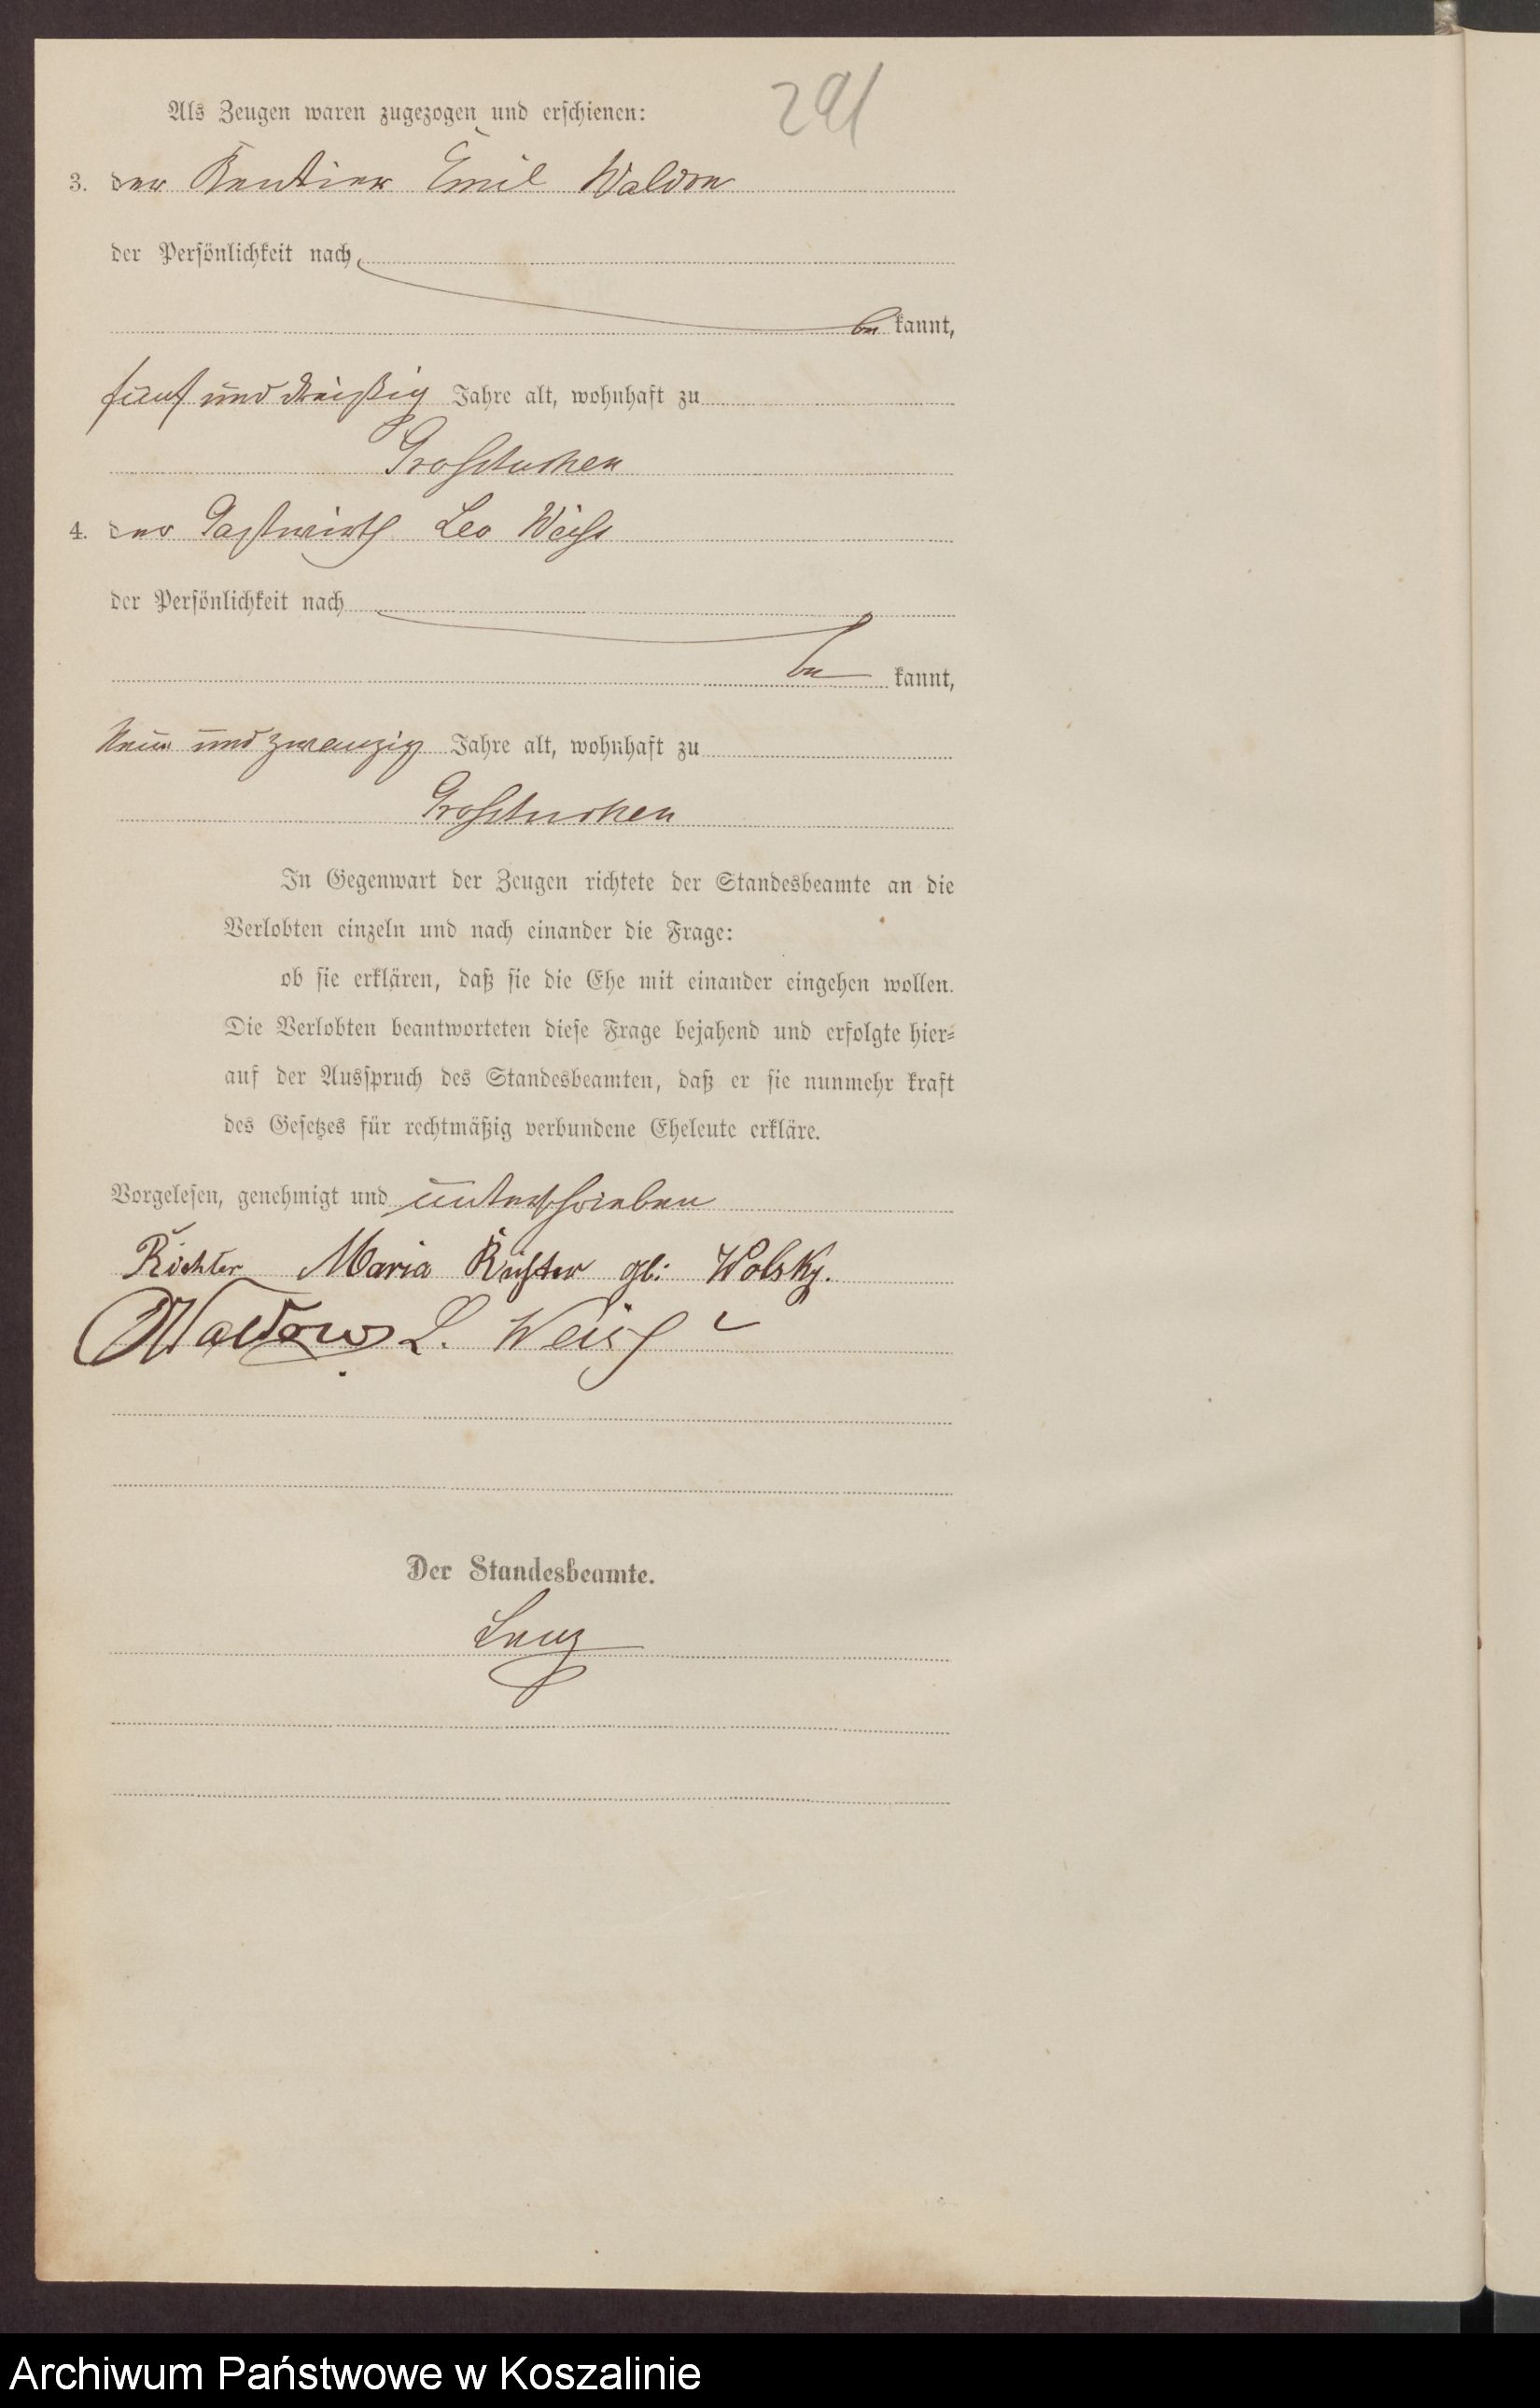 291
Als Zeugen waren zugezogen und erschienen:
3. der Rentier Emil Waldow
der Persönlichkeit nach
be kannt,
fünf und dreißig Jahre alt, wohnhaft zu
Großtuchen
4. der Gastwirth Leo Weiß
der Persönlichkeit nach
be kannt,
Neun und zwanzig Jahre alt, wohnhaft zu
Großtuchen
In Gegenwart der Zeugen richtete der Standesbeamte an die
Verlobten einzeln und nach einander die Frage:
ob sie erklären, daß sie die Ehe mit einander eingehen wollen.
Die Verlobten beantworteten diese Frage bejahend und erfolgte hier-
auf der Ausspruch des Standesbeamten, daß er sie nunmehr kraft
des Gesetzes für rechtmäßig verbundene Eheleute erkläre.
Vorgelesen, genehmigt und unterschrieben
Richter Maria Richter gb: Wolsky.
Waldow L. Weiß
Der Standesbeamte.
Lenz
Archiwum Państwowe w Koszalinie